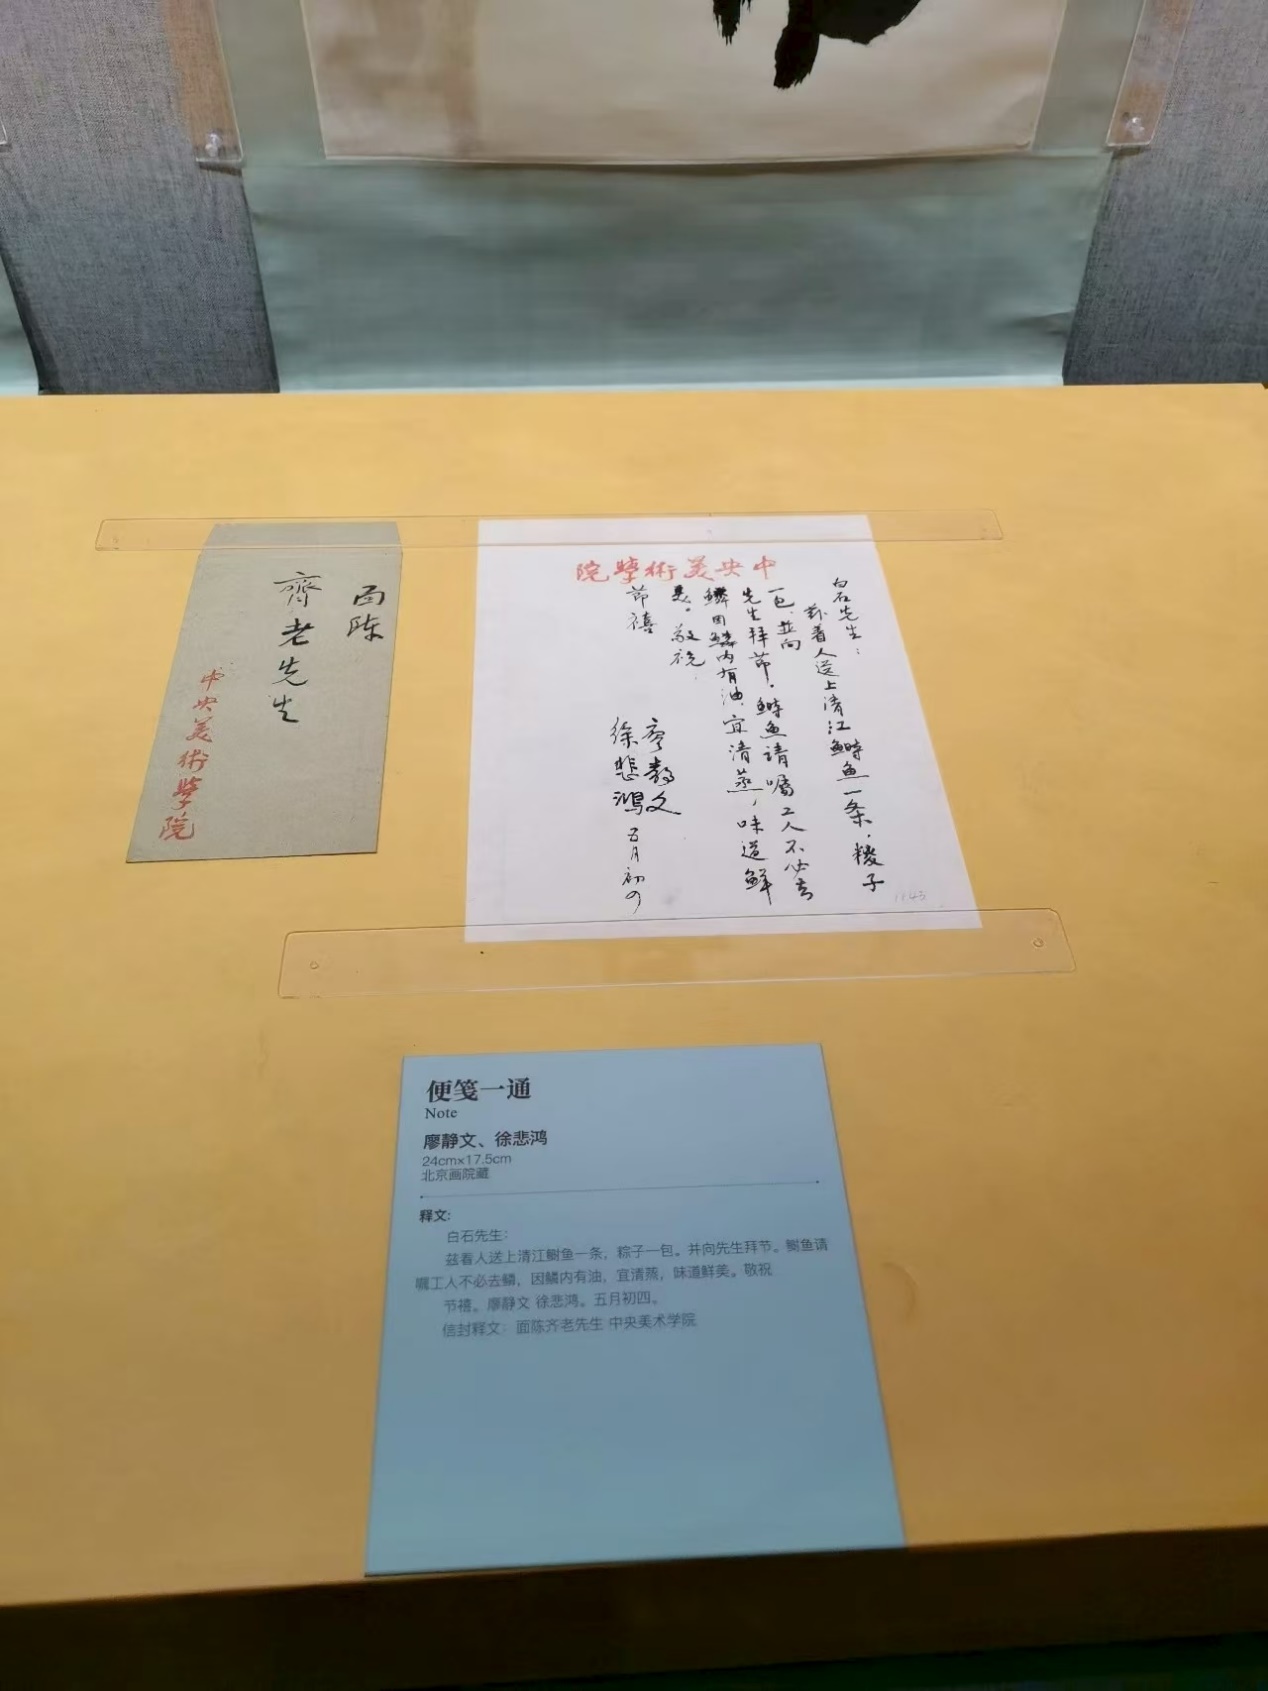 面陳
齊老先生
中央美術學院
中央美術學院
白石先生：
茲着人送上清江鰣魚一条，糉子
一包，並向
先生拜節！鰣魚請囑工人不必去
鱗因鱗内有油，宜清蒸，味道鮮
美。敬祝
節禧
廖静文
徐悲鴻 五月初四
1143
便笺一通
Note
廖静文、徐悲鸿
24cm×17.5cm
北京画院藏
释文:
白石先生：
兹着人送上清江鲥鱼一条，粽子一包。并向先生拜节。鲥鱼请
嘱工人不必去鳞，因鳞内有油，宜清蒸，味道鲜美。敬祝
节禧。廖静文 徐悲鸿。五月初四。
信封释文：面陈齐老先生 中央美术学院